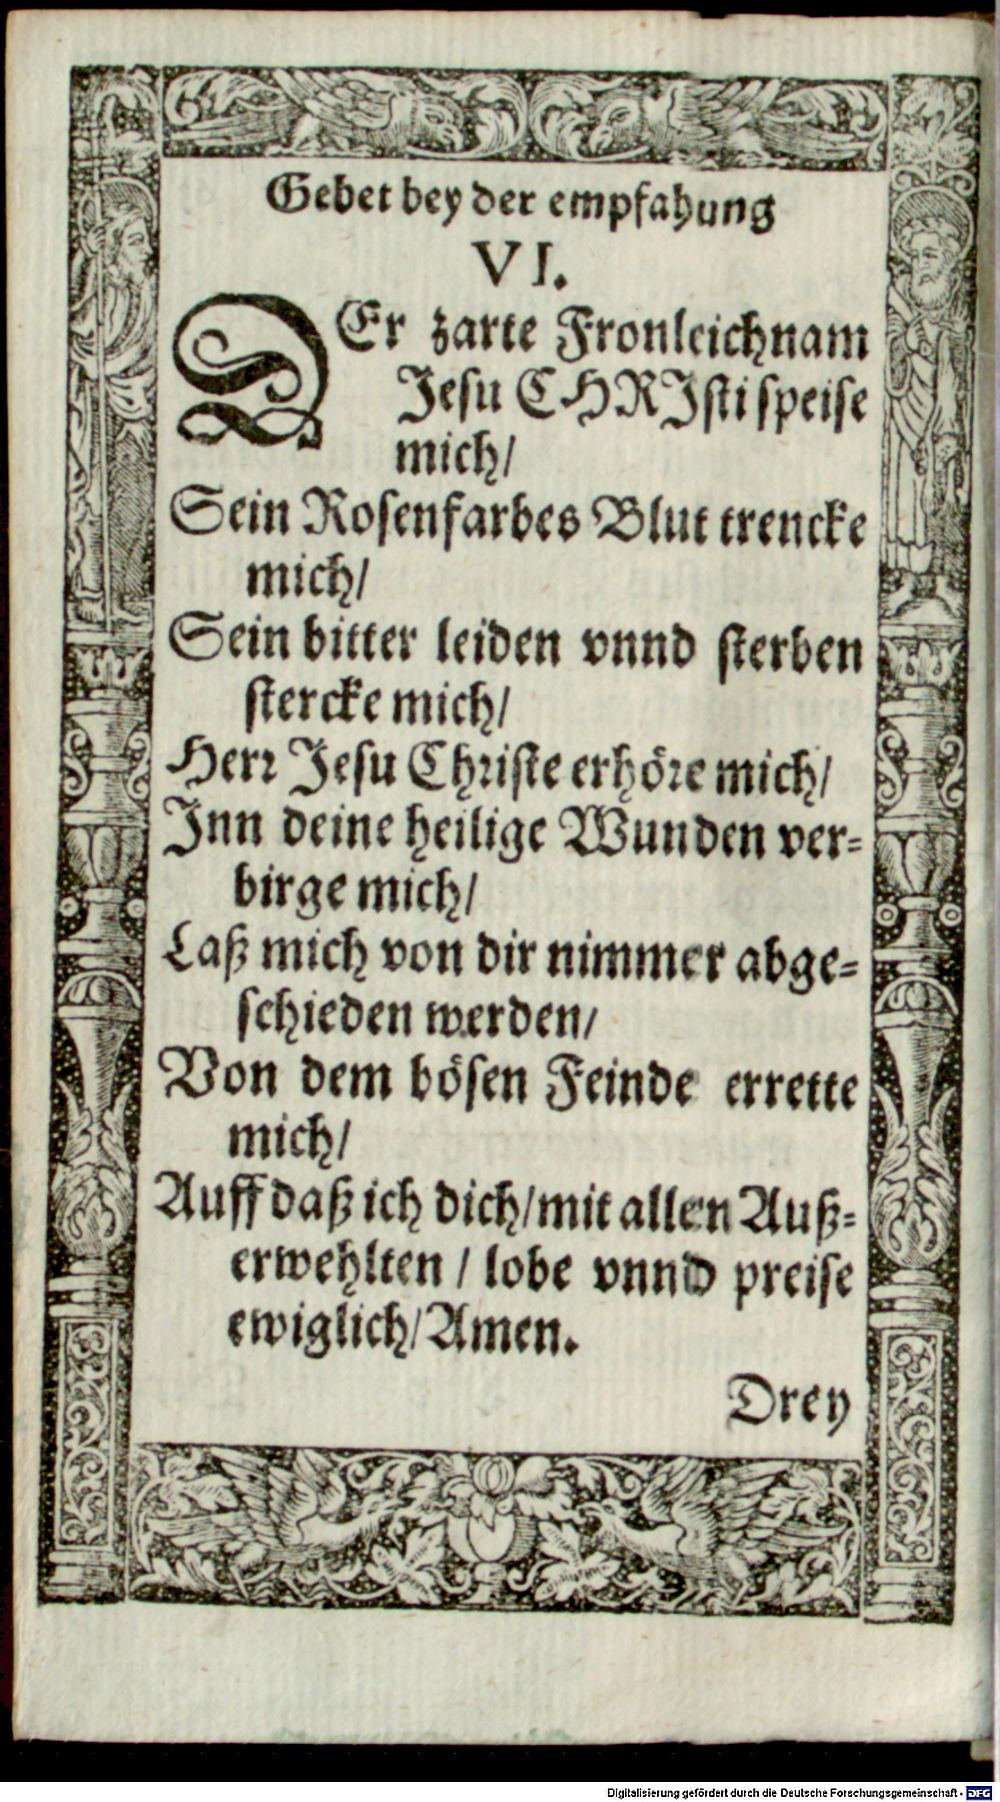 Gebet bey der empfahung
VI.
DEr zarte Fronleichnam
Jesu CHRJsti speise
mich/
Sein Rosenfarbes Blut trencke
mich/
Sein bitter leiden vnnd sterben
stercke mich/
Herr Jesu Christe erhöre mich/
Jnn deine heilige Wunden ver-
birge mich/
Laß mich von dir nimmer abge-
schieden werden/
Von dem bösen Feinde errette
mich/
Auff daß ich dich/ mit allen Auß-
erwehlten / lobe vnnd preise
ewiglich/ Amen.
Drey
Digitalisierung gefördert durch die Deutsche Forschungsgemeinschaft - DFG